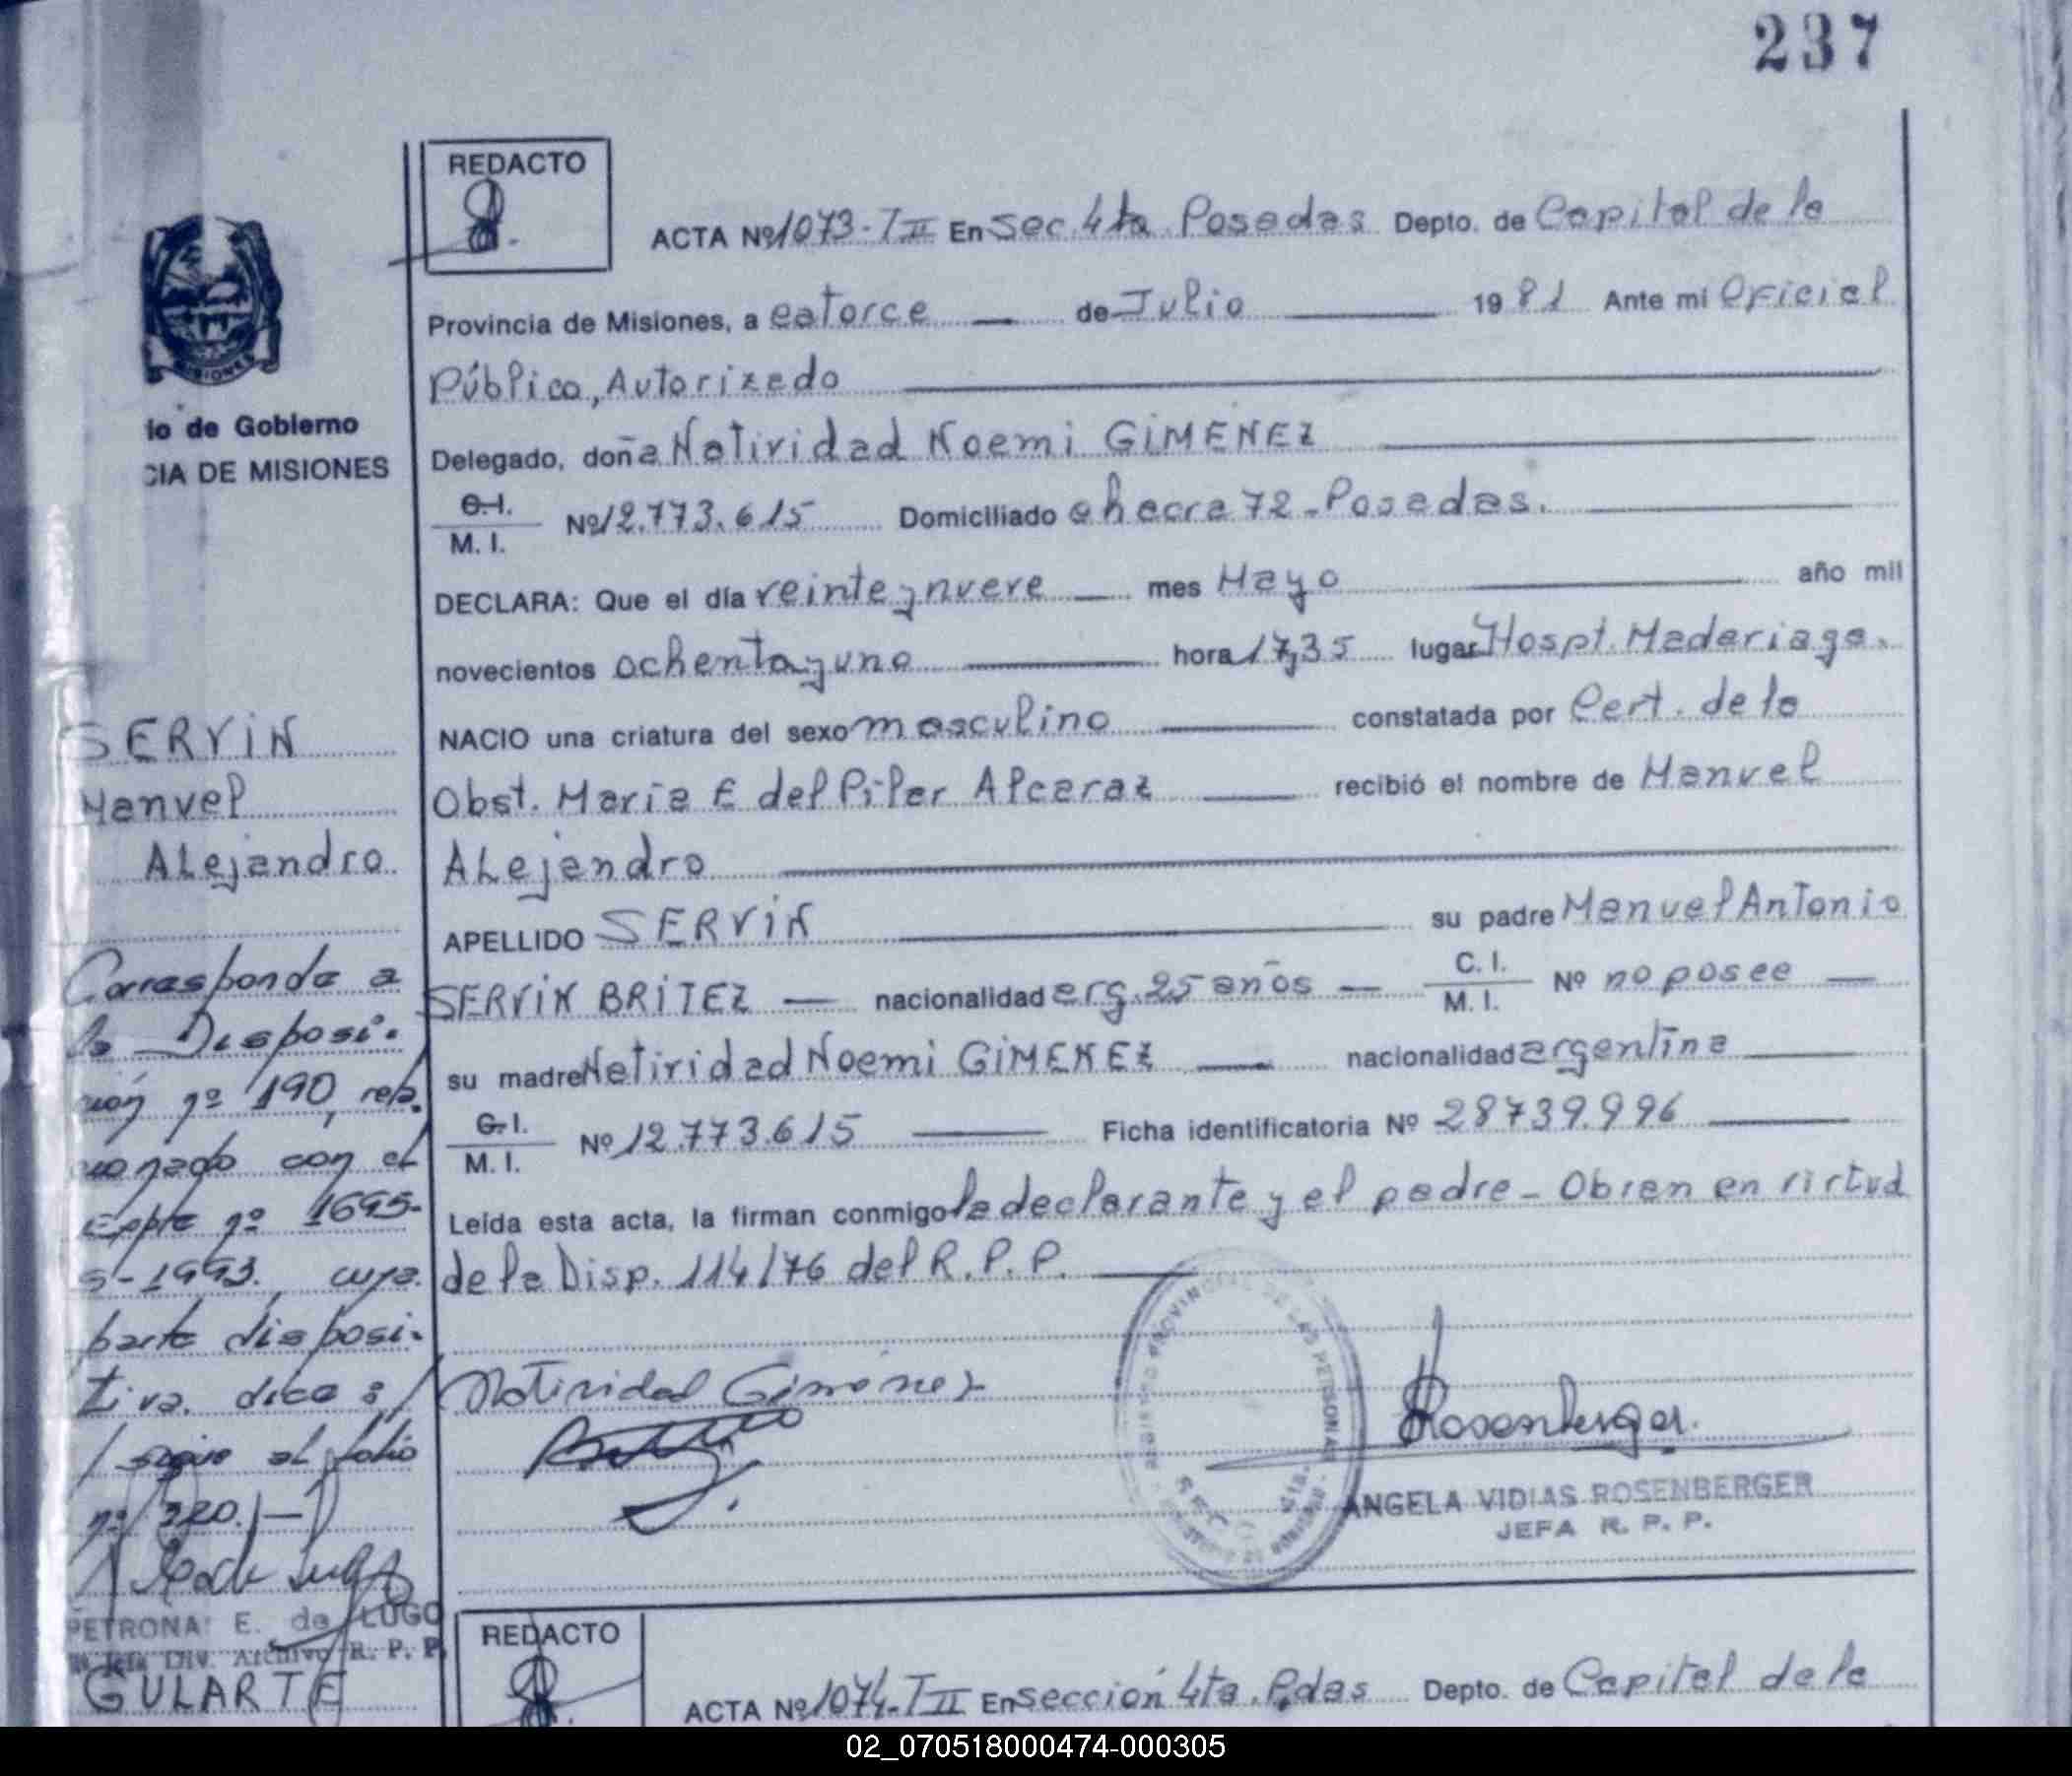 237
REDACTO
ACTA Nº 1073-TII En Sec. 4ta Posadas Depto. de Capital de la
Provincia de Misiones, a catorce — de Julio — 1981 Ante mi Oficial
Público, Autorizado
Delegado, doña Natividad Noemi GIMENEZ
C.I.
M. I. Nº 12.773.615 Domiciliado chacra 72-Posadas.
DECLARA: Que el día veinte y nueve — mes Mayo — año mil
novecientos ochenta y uno — hora 17,35 lugar Hospt. Madariaga.
NACIO una criatura del sexo masculino — constatada por Cert. de la
Obst. Maria E del Pilar Alcaraz — recibió el nombre de Manuel
ALejandro
APELLIDO SERVIN — su padre Manuel Antonio
SERVIN BRITEZ — nacionalidad arg. 25 años — C. I.
M. I. Nº no posee —
su madre Natividad Noemi GIMENEZ — nacionalidad argentina
C.I.
M. I. Nº 12.773.615 — Ficha identificatoria Nº 28739.996
Leída esta acta, la firman conmigo la declarante y el padre - Obran en virtud
de la Disp. 114/76 del R. P. P. —
Natividad Gimenez
Rosenberger
ANGELA VIDIAS ROSENBERGER
JEFA R. P. P.
io de Gobierno
CIA DE MISIONES
SERVIN
Manuel
ALejandro
Corresponde a
la Disposi-
ción nº 190, rela
cionado con el
Expte nº 1695-
S-1993, cuya
parte disposi-
tiva dice:/
/sigue al folio
nº 320./-
PETRONA E. de LUGO
Div. Archivo R. P. P.
GULARTE
REDACTO
ACTA Nº 1074-TII En sección 4ta. Pdas Depto. de Capital de la
02_070518000474-000305